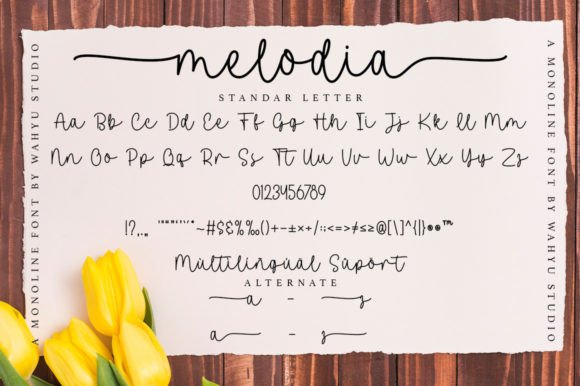 melodia
STANDAR LETTER
Aa Bb Cc Dd Ee Ff Gg Hh Ii Jj Kk Ll Mm
Nn Oo Pp Qq Rr Ss Tt Uu Vv Ww Xx Yy Zz
0123456789
~#$£%‰()+-±×÷/:;<=>≠≤≥@[\]^{|}®©™
Multilingual Suport
ALTERNATE
a - z
a - z
A MONOLINE FONT BY WAHYU STUDIO
A MONOLINE FONT BY WAHYU STUDIO